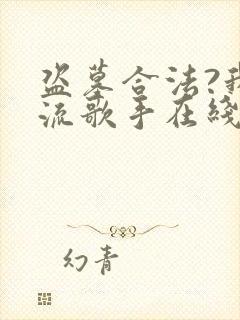 盗墓合法?我
流歌手在线
幻青